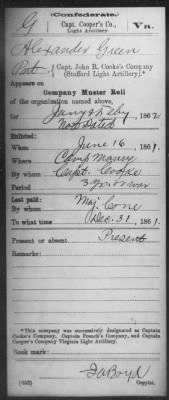 (Confederate.)
G Capt. Cooper's Co., Va.
Light Artillery.
Alexander Green
Pvt., Capt. John R. Cooke's Company
(Stafford Light Artillery).*
Appears on
Company Muster Roll
of the organization named above,
for Jany & Feby, 1862
Not Dated
Enlisted:
When June 16, 1861.
Where Camp Maury
By whom Capt. Cooke
Period 3 yrs or war
Last paid:
By whom Maj. Cone
To what time Dec. 31, 1861.
Present or absent Present
Remarks:
*This company was successively designated as Captain
Cooke's Company, Captain French's Company, and Captain
Cooper's Company Virginia Light Artillery.
Book mark:
(642) Copyist.